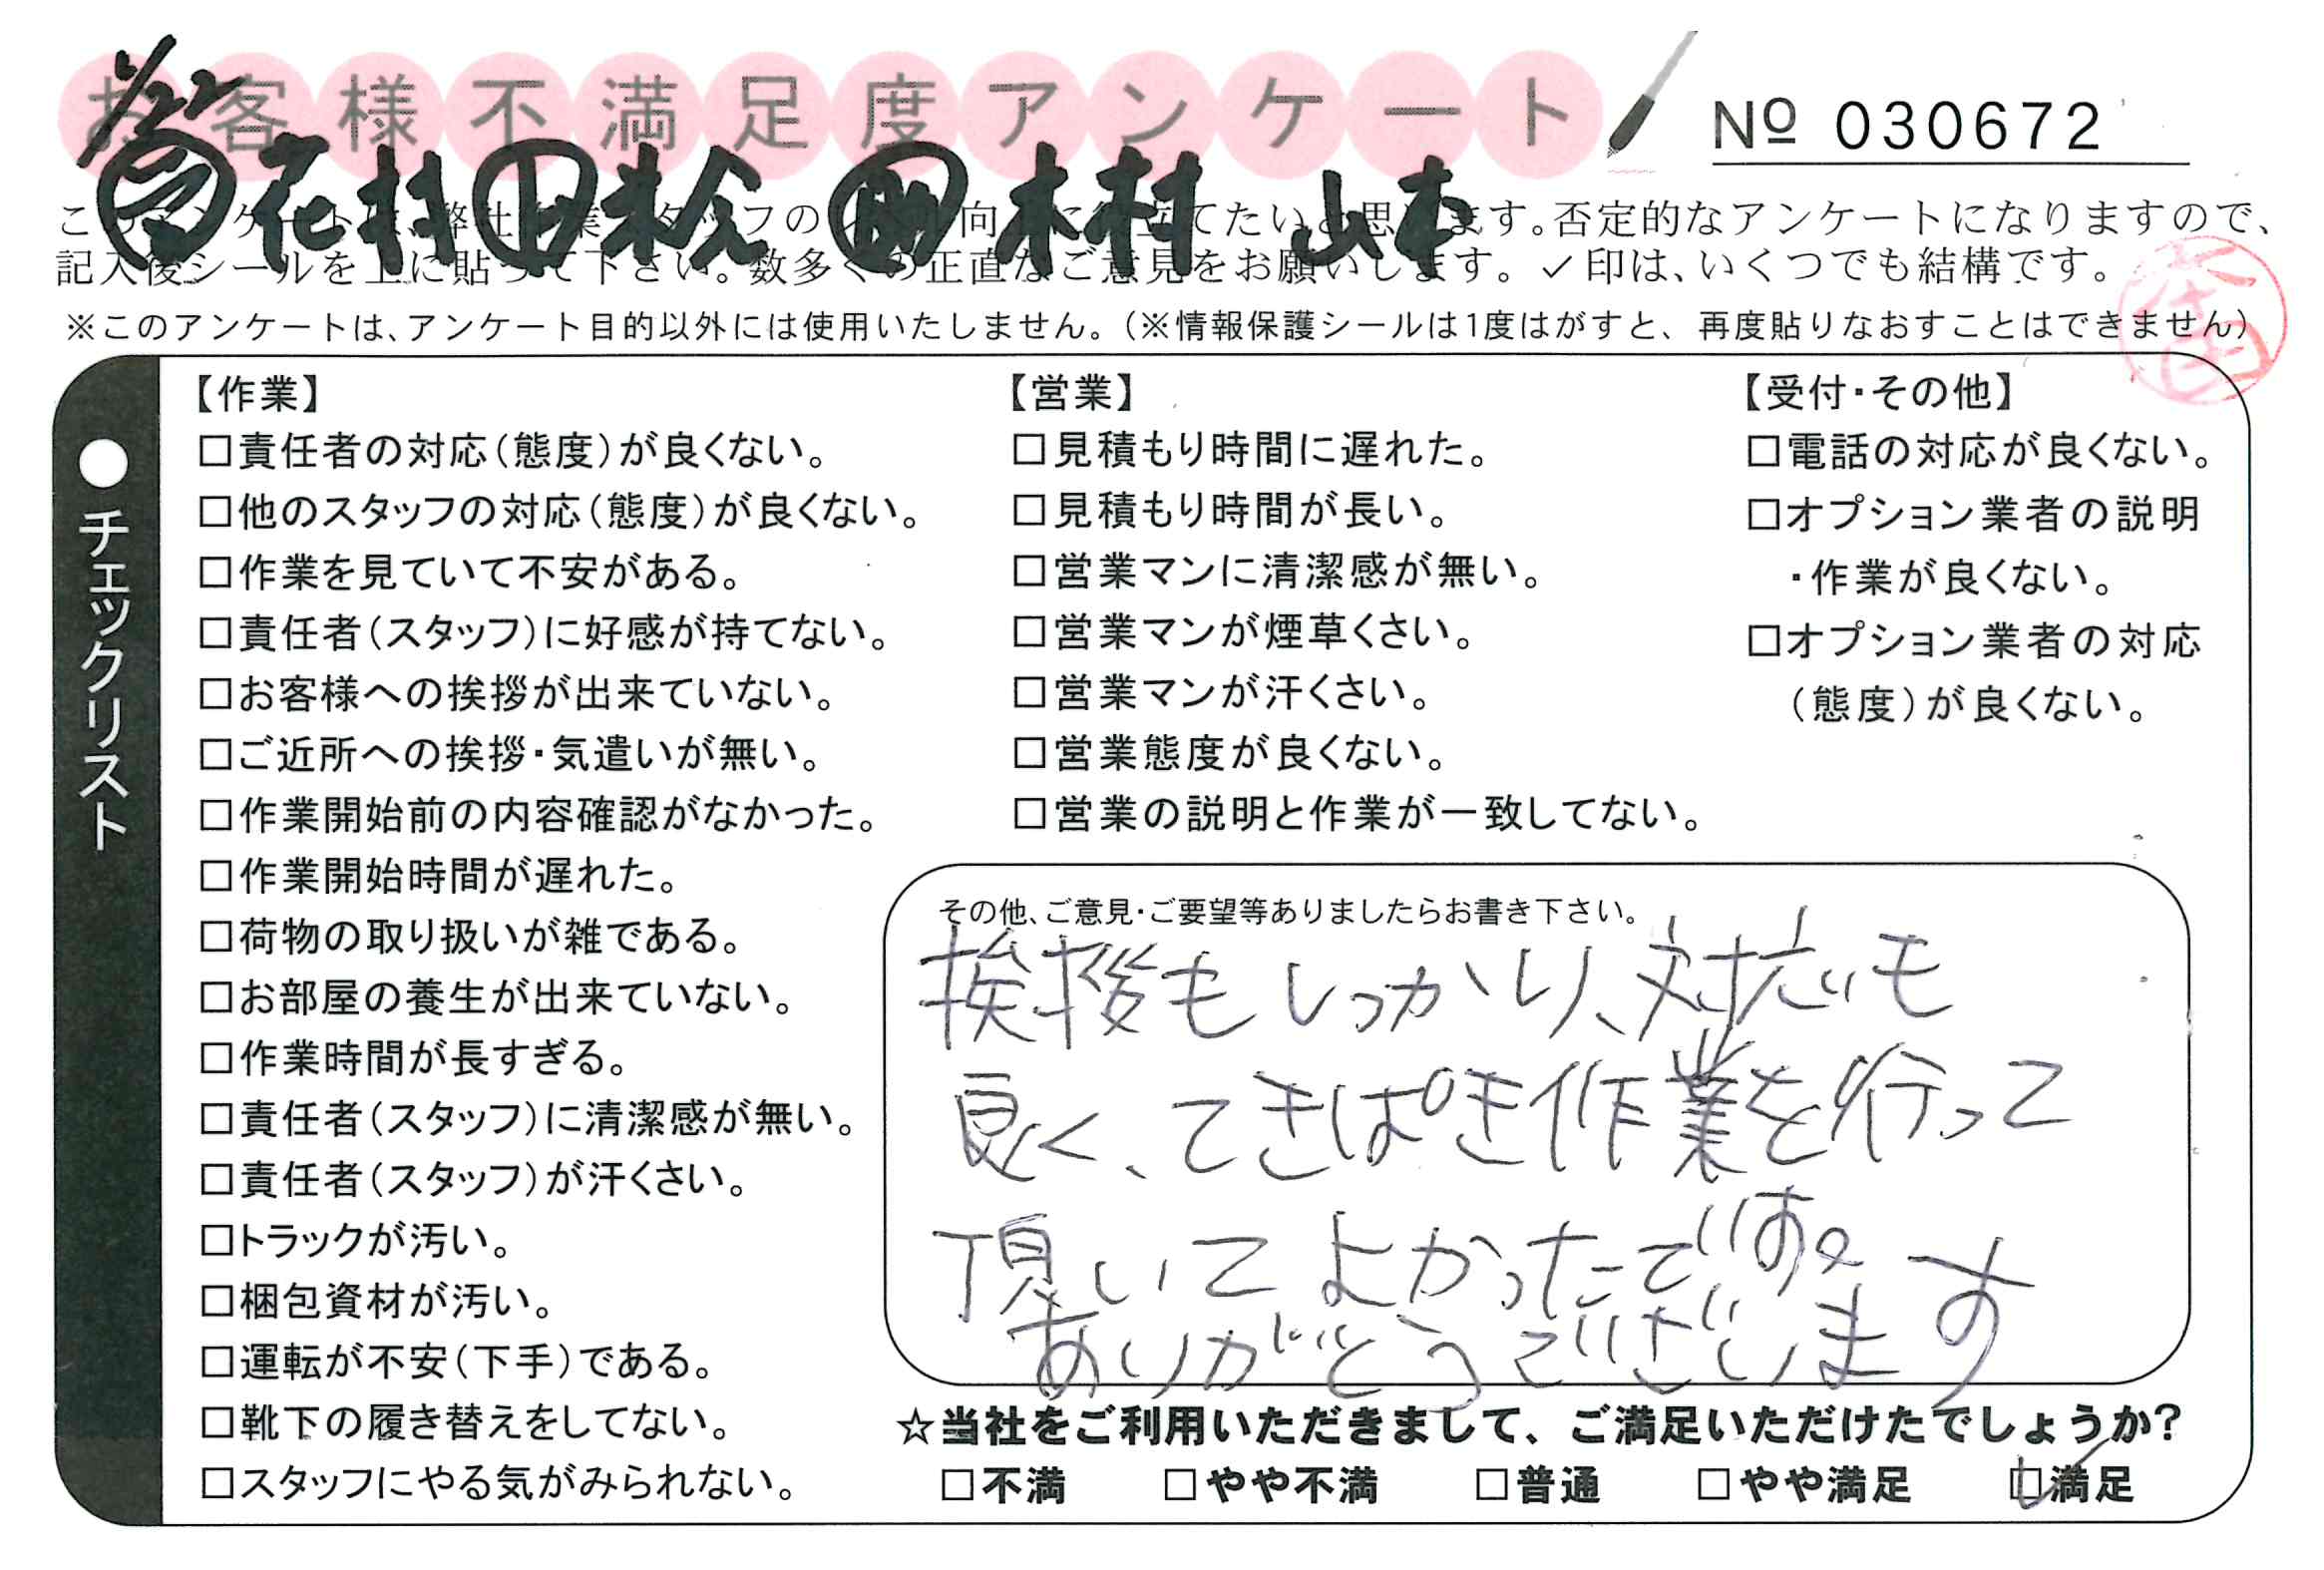 お客様不満足度アンケート
№ 030672
6/22
花村 末松 助 木村 山本
このアンケートは、弊社作業スタッフの 向 に役立てたいと思います。否定的なアンケートになりますので、
記入後シールを上に貼って下さい。数多くの正直なご意見をお願いします。✓印は、いくつでも結構です。
※このアンケートは、アンケート目的以外には使用いたしません。(※情報保護シールは1度はがすと、再度貼りなおすことはできません)
●チェックリスト
【作業】
□責任者の対応(態度)が良くない。
□他のスタッフの対応(態度)が良くない。
□作業を見ていて不安がある。
□責任者(スタッフ)に好感が持てない。
□お客様への挨拶が出来ていない。
□ご近所への挨拶・気遣いが無い。
□作業開始前の内容確認がなかった。
□作業開始時間が遅れた。
□荷物の取り扱いが雑である。
□お部屋の養生が出来ていない。
□作業時間が長すぎる。
□責任者(スタッフ)に清潔感が無い。
□責任者(スタッフ)が汗くさい。
□トラックが汚い。
□梱包資材が汚い。
□運転が不安(下手)である。
□靴下の履き替えをしてない。
□スタッフにやる気がみられない。
【営業】
□見積もり時間に遅れた。
□見積もり時間が長い。
□営業マンに清潔感が無い。
□営業マンが煙草くさい。
□営業マンが汗くさい。
□営業態度が良くない。
□営業の説明と作業が一致してない。
【受付・その他】
□電話の対応が良くない。
□オプション業者の説明
・作業が良くない。
□オプション業者の対応
(態度)が良くない。
その他、ご意見・ご要望等ありましたらお書き下さい。
挨拶もしっかり、対応も
良く、てきぱき作業を行って
頂いてよかったです。
ありがとうございます
☆当社をご利用いただきまして、ご満足いただけたでしょうか?
□不満 □やや不満 □普通 □やや満足 ☑満足